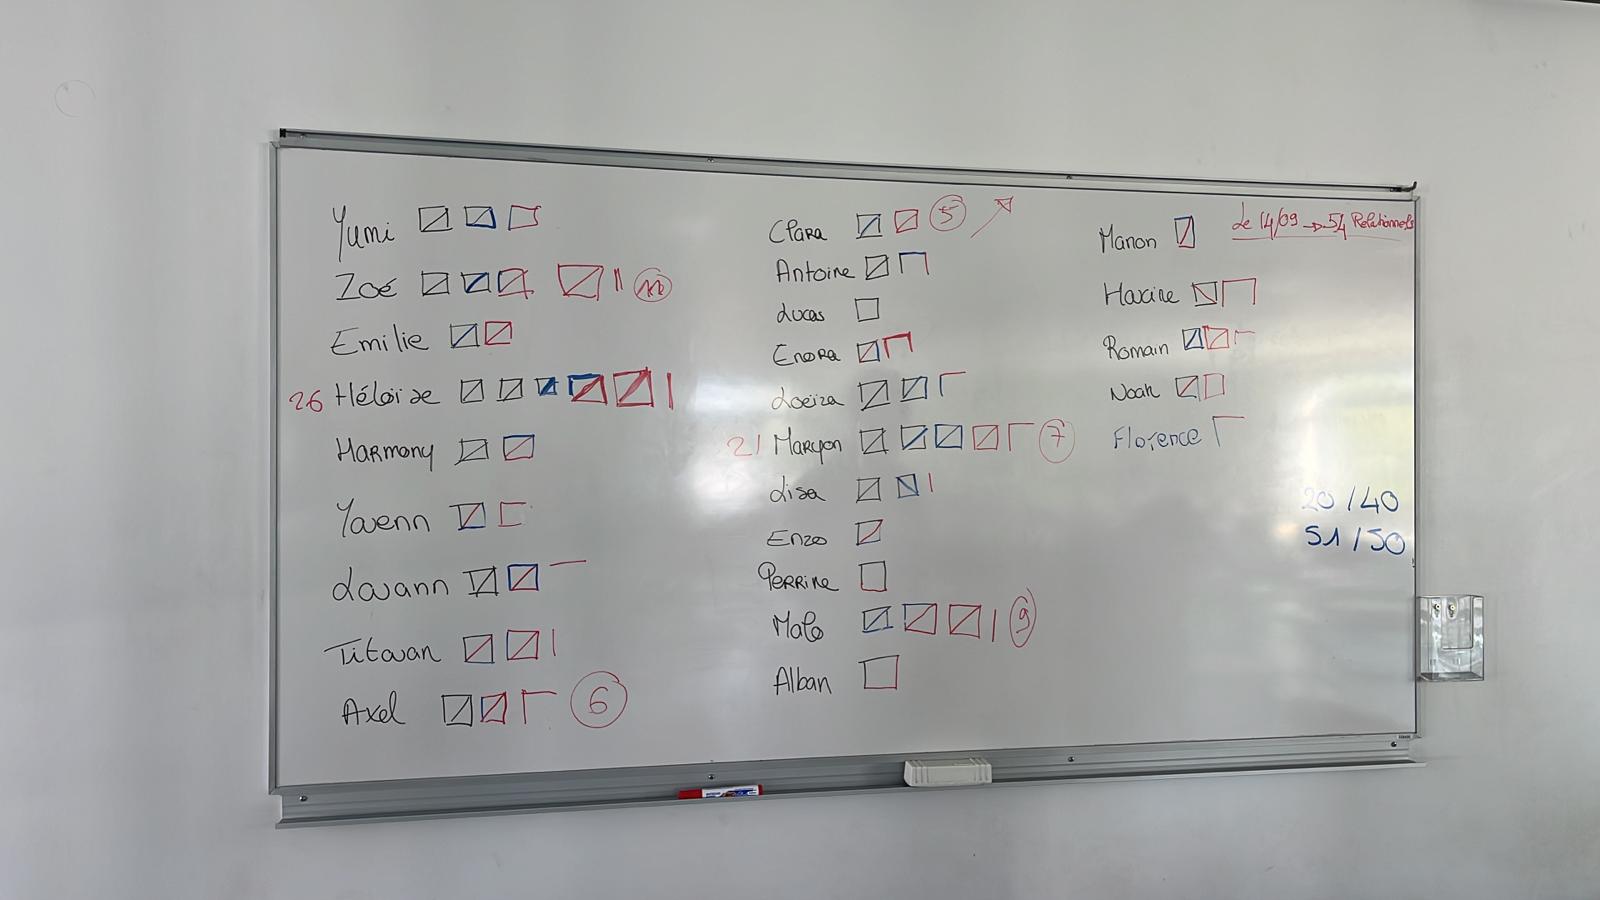 Yumi
Zoé
Emilie
26 Héloïse
Harmony
Yavenn
Lavann
Titouan
Axel 6
Clara 5
Antoine
Lucas
Enora
Loeïza
21 Maryon 7
Lisa
Enzo
Perrine
Malo 9
Alban
Manon
Le 14/09 → 54 Relationnels
Maxime
Romain
Noah
Florence
20/40
51/50